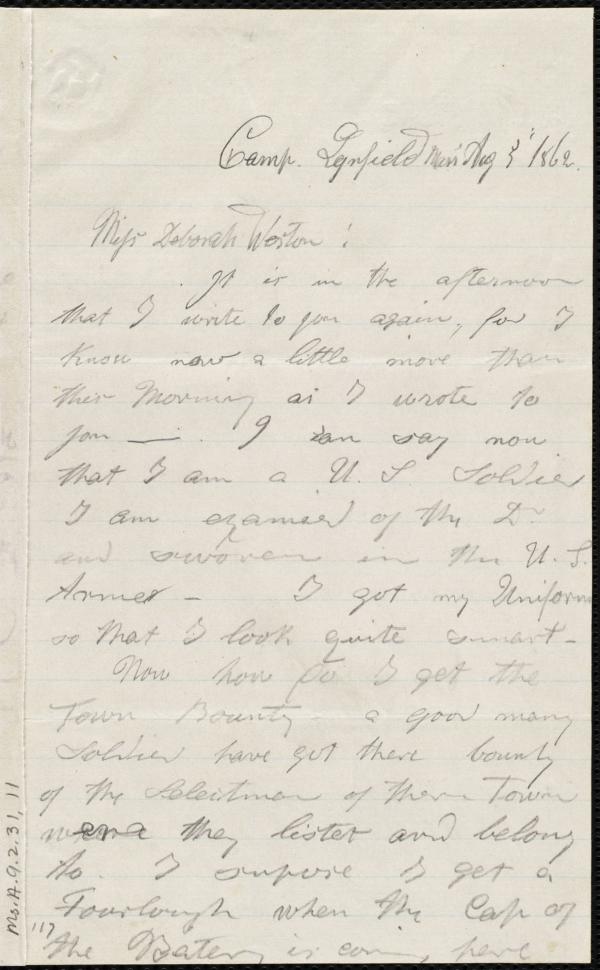 Camp. Lynfield Mass Aug 5" 1862.
Miss Deborah Weston!
It is in the afternoon
that I write to you again, for I
know now a little more than
this Morning as I wrote to
you —. I can say now
that I am a U. S. Soldier
I am examied of the Dr
and sworen in the U. S.
Armee — I got my Uniform
so that I look quite smart —
Now how do I get the
Town Bounty — a good many
Soldier have got there bounty
of the Seleitman of there Town
were they listet and belong
to. I supose I get a
Fourlough when the Cap of
the Batery is comin, here
Ms.A.9.2.31, 11